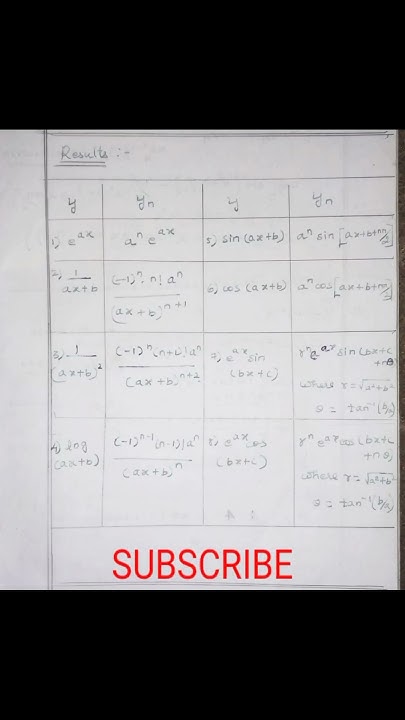 Results :-
y yn y yn
1) e^ax a^n e^ax 5) sin (ax+b) a^n sin [ax+b+nπ/2]
2) 1/(ax+b) (-1)^n · n! a^n / (ax+b)^(n+1) 6) cos (ax+b) a^n cos [ax+b+nπ/2]
3) 1/(ax+b)^2 (-1)^n (n+1)! a^n / (ax+b)^(n+2) 7) e^ax sin (bx+c) r^n e^ax sin (bx+c +nθ)
where r = √a²+b²
θ = tan^-1 (b/a)
4) log (ax+b) (-1)^(n-1) (n-1)! a^n / (ax+b)^n 8) e^ax cos (bx+c) r^n e^ax cos (bx+c +nθ)
where r = √a²+b²
θ = tan^-1 (b/a)
SUBSCRIBE